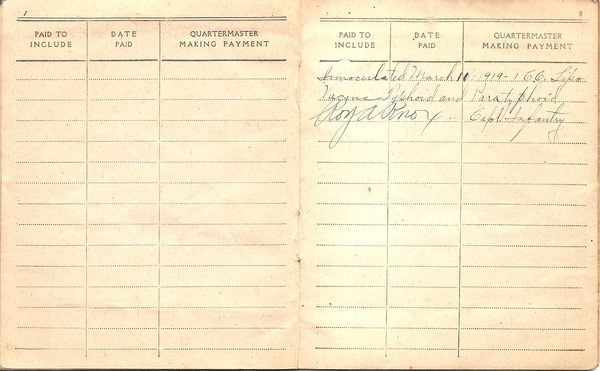 PAID TO INCLUDE
DATE PAID
QUARTERMASTER MAKING PAYMENT
8
PAID TO INCLUDE
DATE PAID
QUARTERMASTER MAKING PAYMENT
Innoculated March 10 1919 - 1 CC. Lipo
Vacine Typhoid and Paratyphoid
Roy A Knox Capt. Infantry